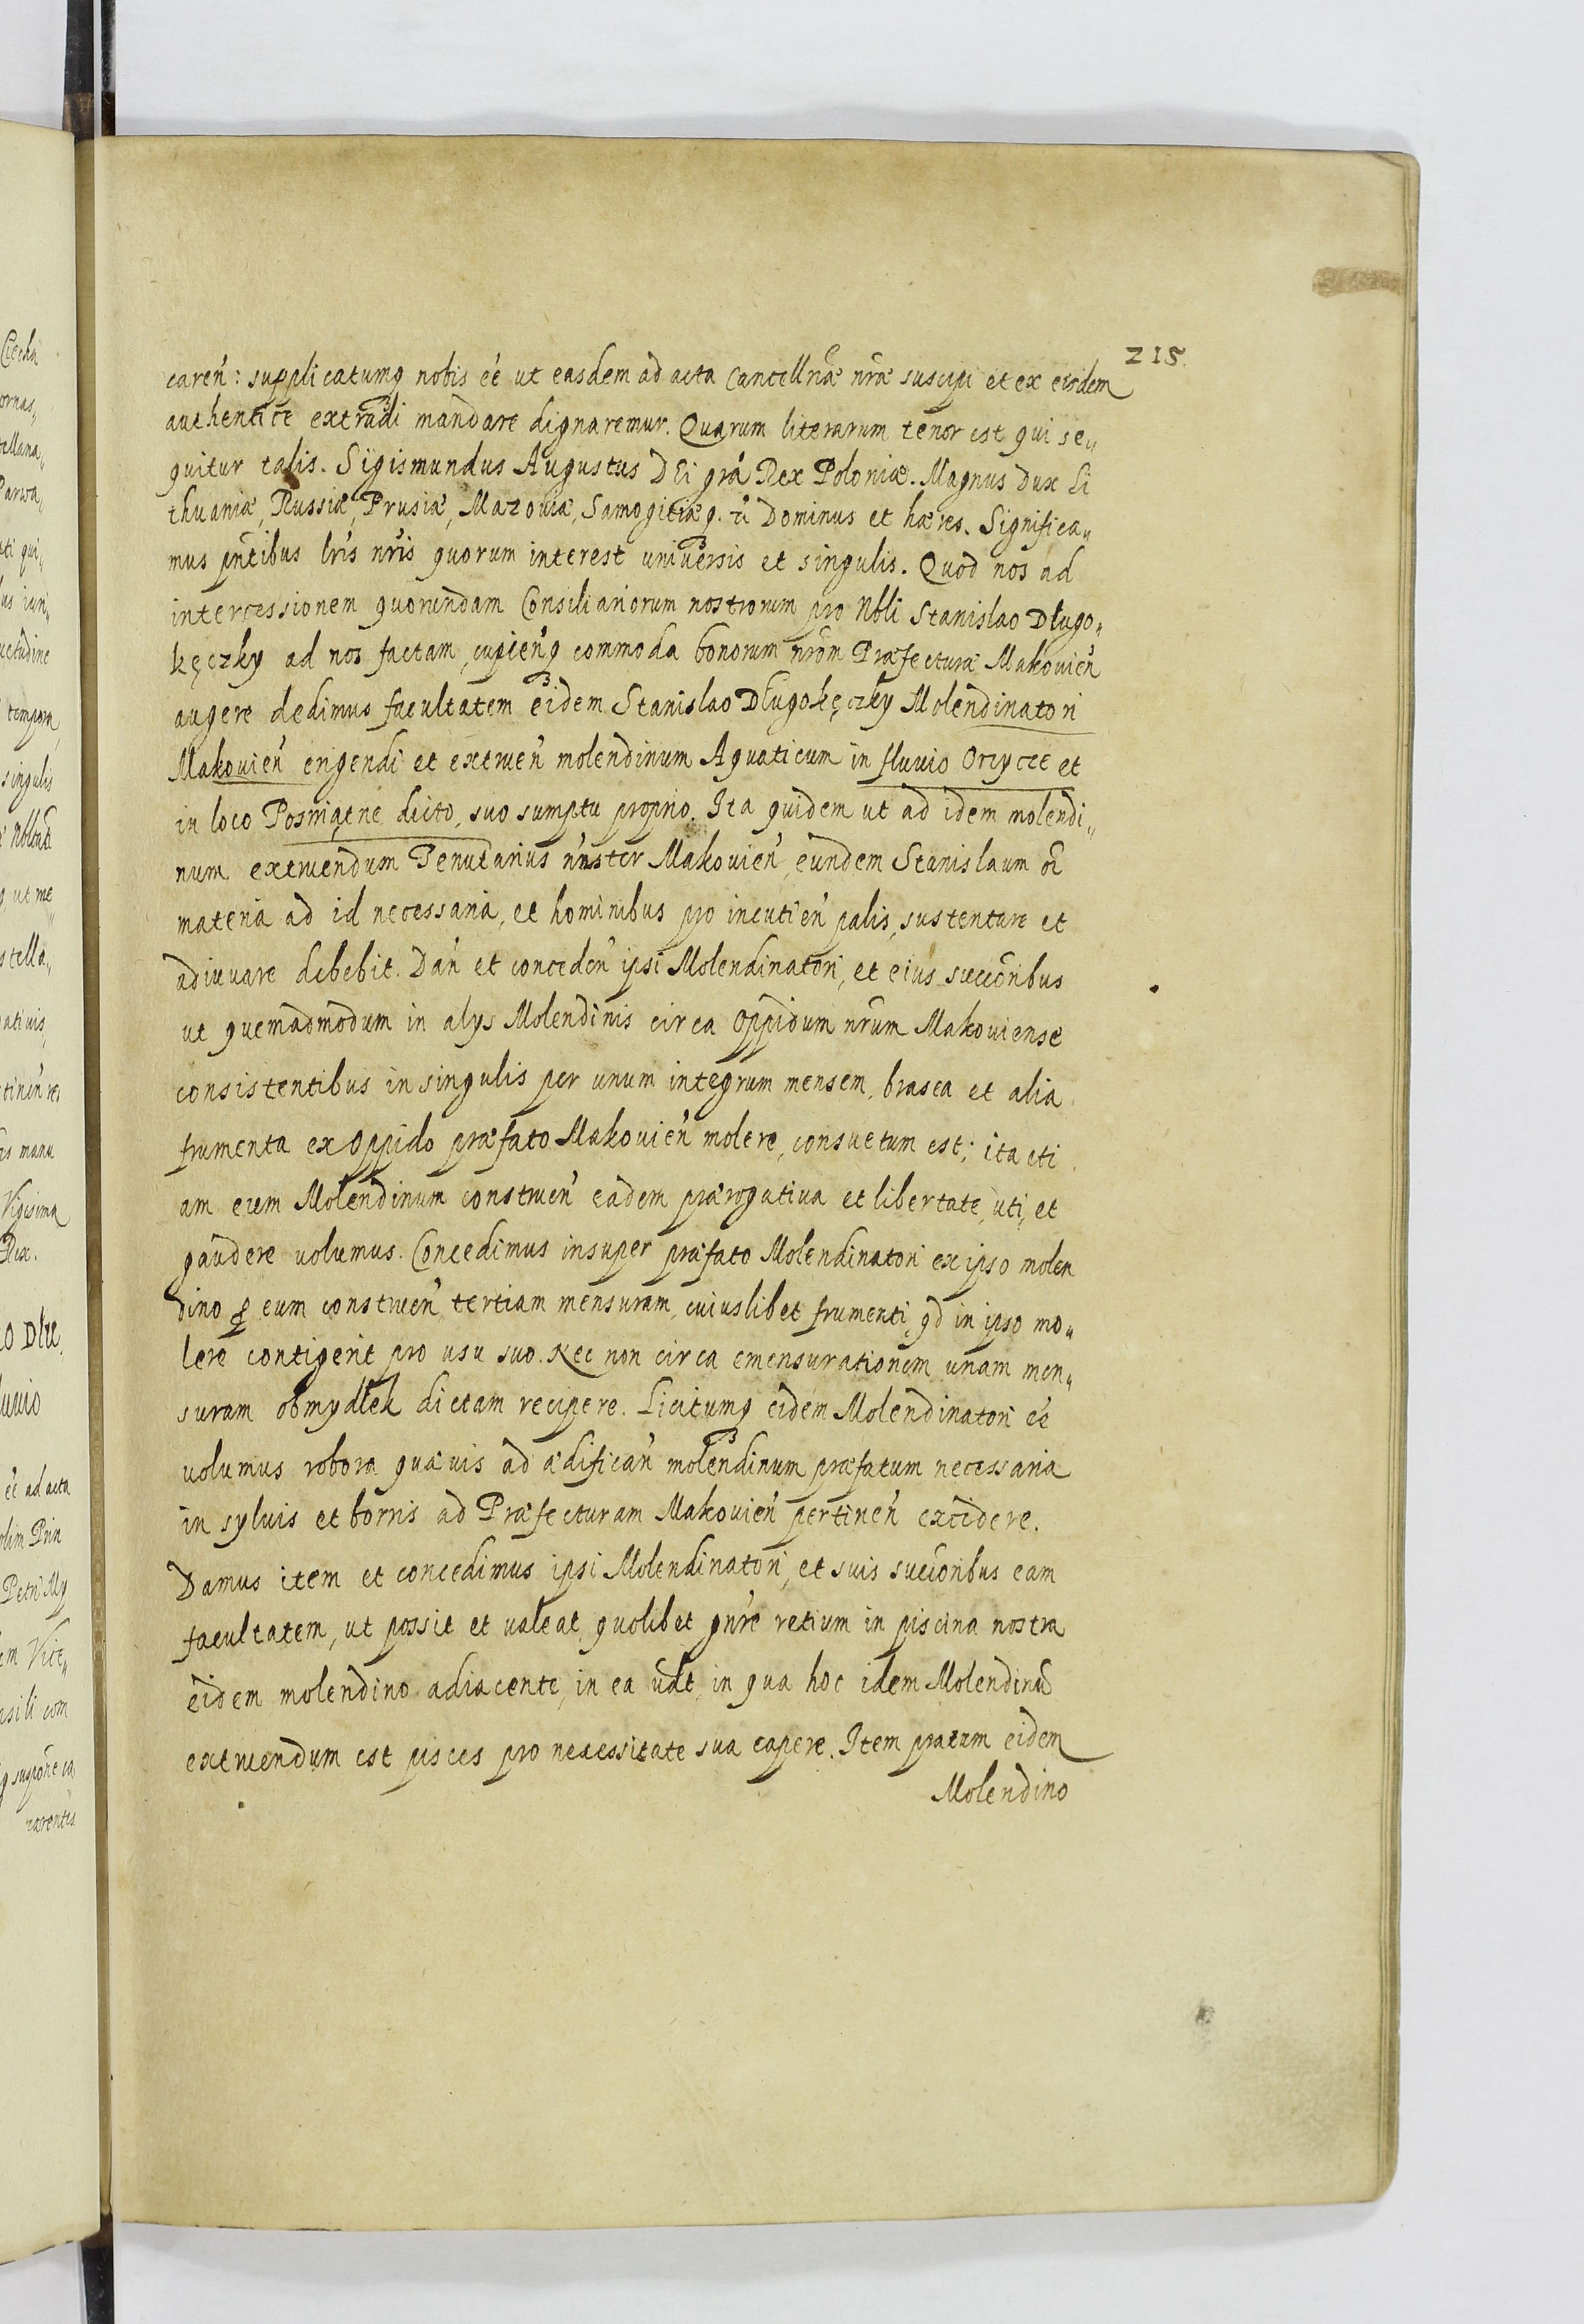 215.
caren̄: supplicatumq nobis eē ut easdem ad acta Cancellriæ nr̄æ suscipi et ex eisdem
authentice extradi mandare dignaremur. Quarum literarum tenor est qui se„
quitur talis. Sigismundus Augustus DEi grā Rex Poloniæ. Magnus Dux Li
thuaniæ, Russiæ, Prusiæ, Mazouiæ, Samogitiæq. Dominus et hæres. Significa„
mus pn̄tibus lrīs nrīs quorum interest uniuersis et singulis. Quod nos ad
intercessionem quorundam Consiliariorum nostrorum pro Nbli Stanislao Długo„
kęczky ad nos factam, cupien̄q commoda bonorum nrōm Præfecturæ Makouien̄
augere dedimus facultatem eidem Stanislao Długokęczky Molendinatori
Makouien̄ erigendi et extruen̄ molendinum Aquaticum in fluuio Orzycze et
in loco dicto, suo sumptu proprio. Ita quidem ut ad idem molendi„
num extruendum Tenutarius nr̄ster Makouien̄, eundem Stanislaum
materia ad id necessaria, et hominibus pro incutien̄ palis, sustentare et
adiuuare debebit. Dan̄ et conceden̄ ipsi Molendinatori, et eius succōribus
ut quemadmodum in alys Molendinis circa Oppidum nrūm Makouiense
consistentibus in singulis per unum integrum mensem, brasea et alia
frumenta ex Oppido præfato Makouien̄ molere, consuetum est; ita eti
am eum Molendinum construen̄ eadem prærogatiua et libertate, uti, et
gaudere uolumus. Concedimus insuper præfato Molendinatori ex ipso molen
dino ꝑ eum construen̄ tertiam mensuram, cuiuslibet frumenti, qd in ipso mo„
lere contigerit pro usu suo. Nec non circa emensurationem unam men„
suram obmydłek dictam recipere. Licitumq eidem Molendinatori eē
uolumus robora quæuis ad ædifican̄ molendinum præfatum necessaria
in syluis et borris ad Præfecturam Makouien̄ pertinen̄ excidere.
Damus item et concedimus ipsi Molendinatori, et suis succōribus eam
facultatem, ut possit et ualeat, quolibet gn̄re retium in piscina nostra
eidem molendino adiacente, in ea udt, in qua hoc idem Molendinū
extruendum est pisces pro necessitate sua capere. Item pratum eidem
Molendino